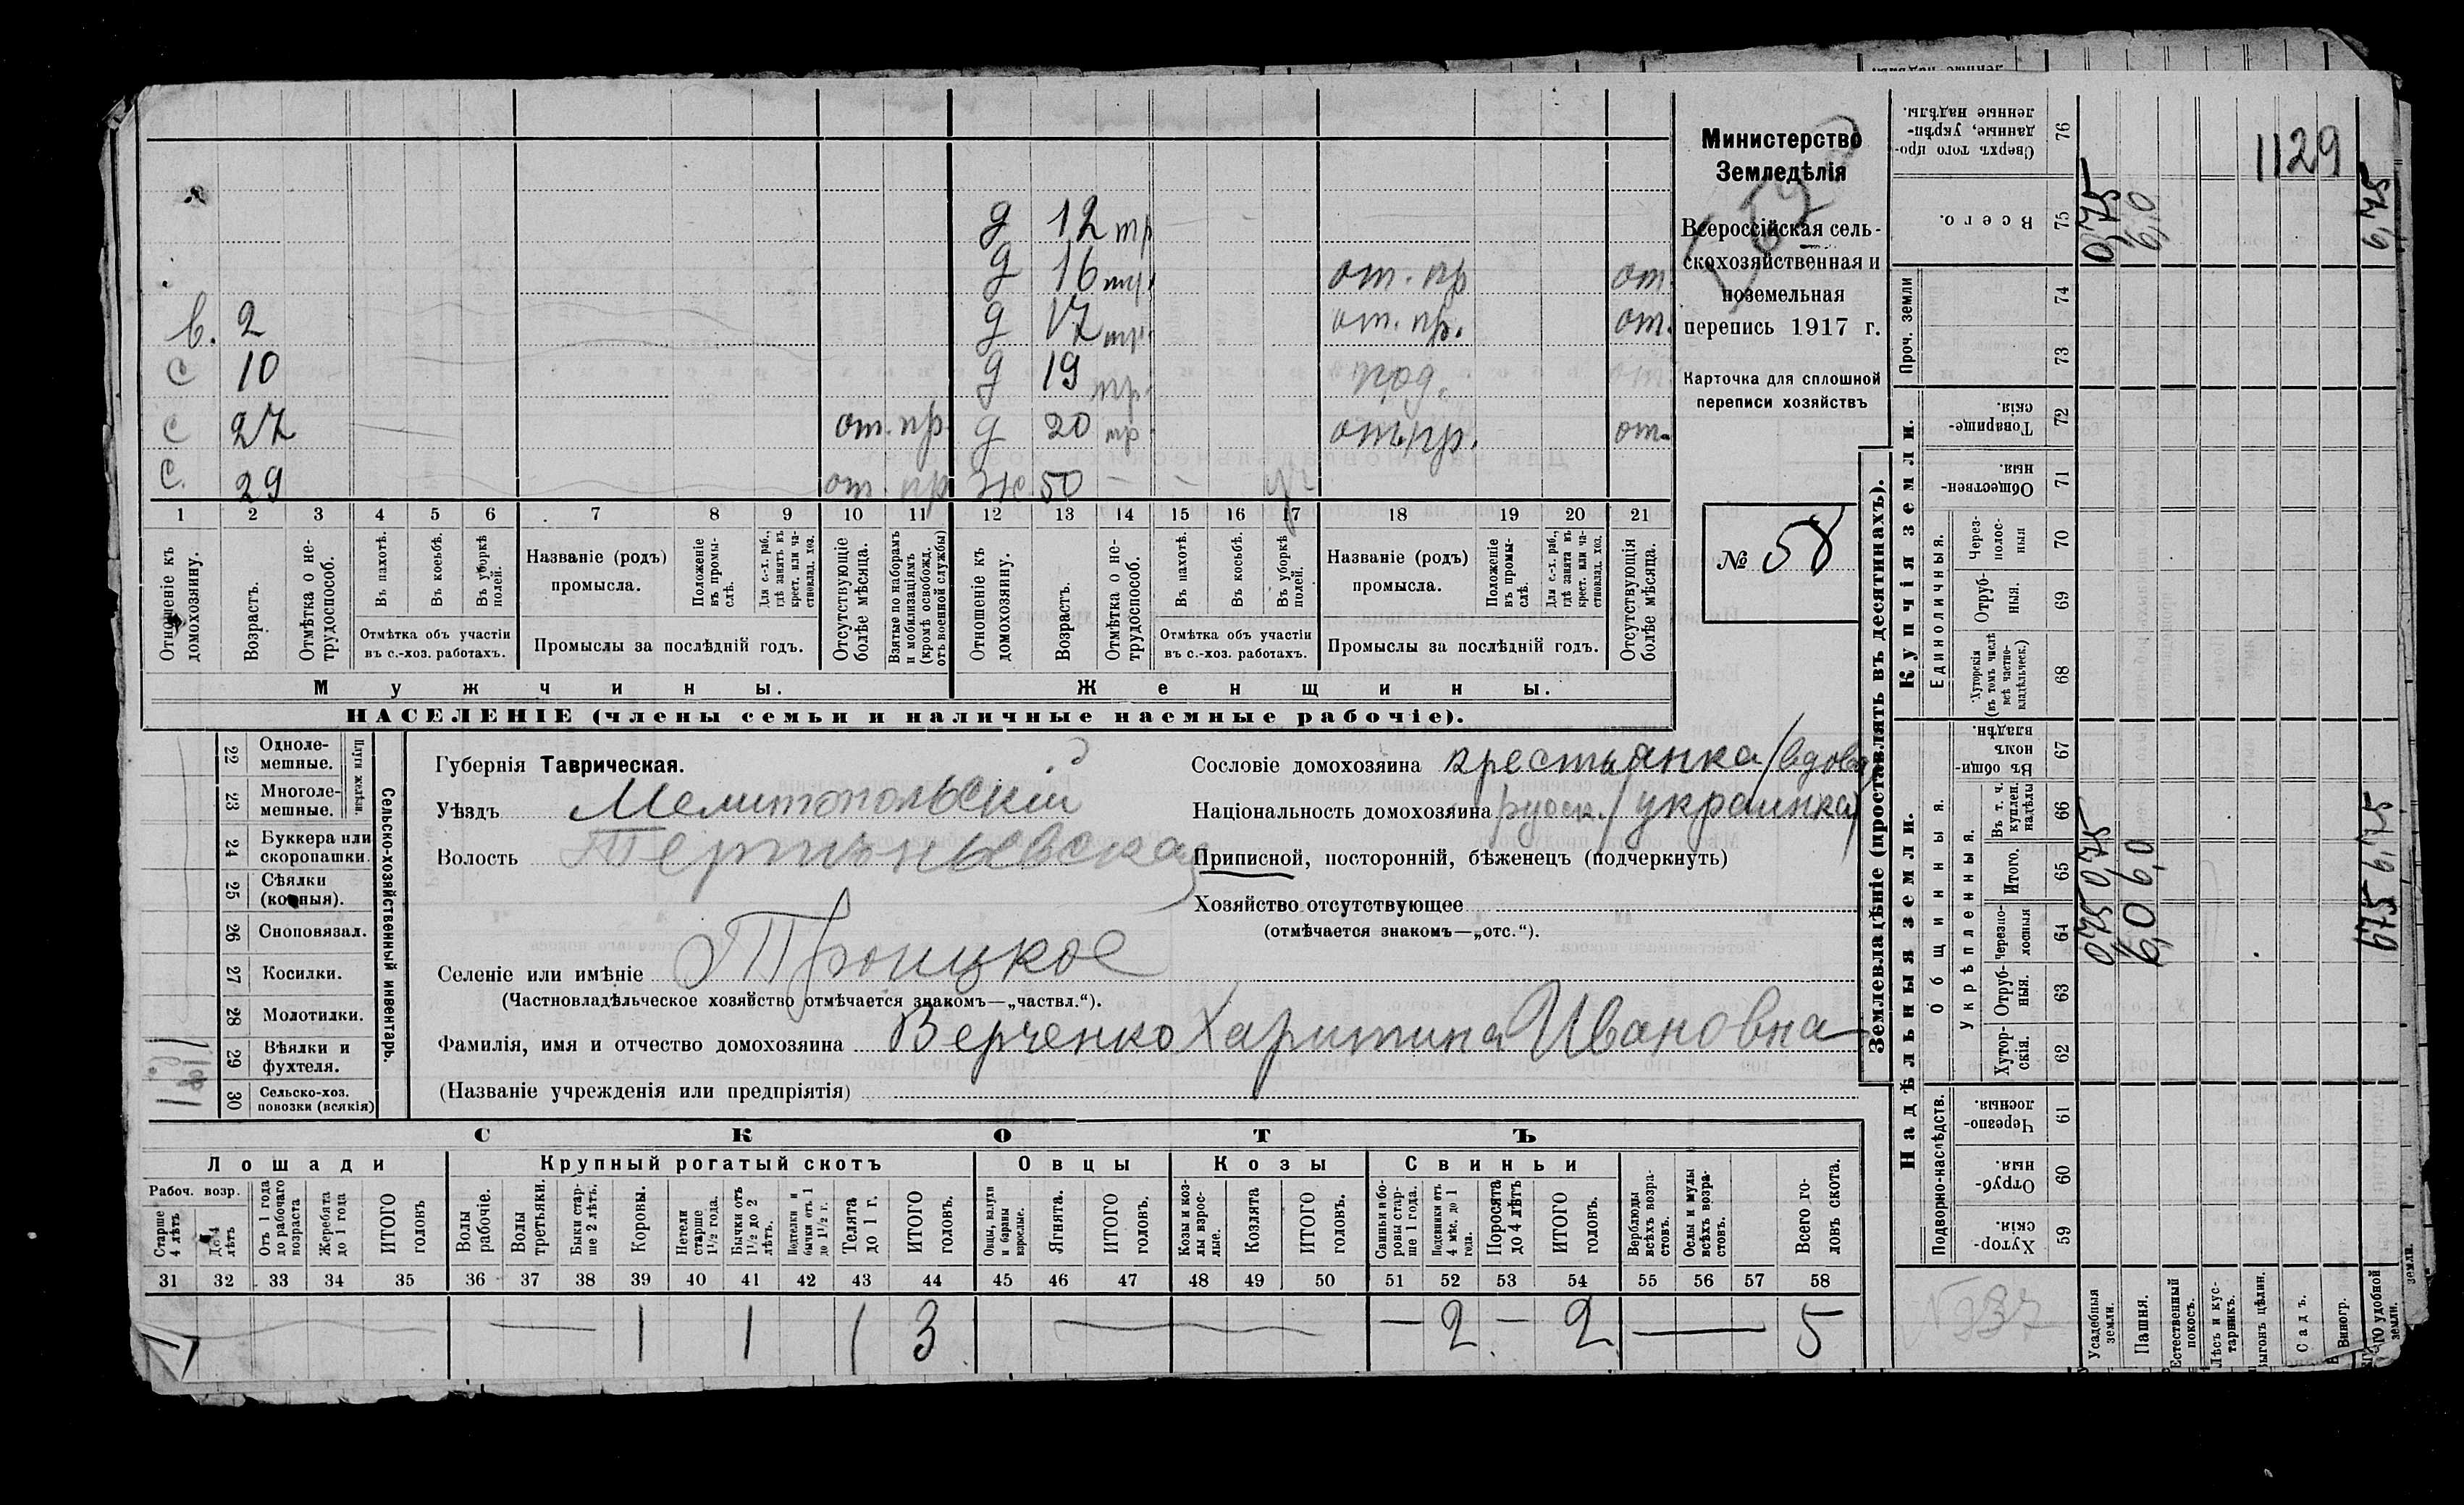 д 12 тр
д 16 тр. от. пр от.
в. 2 д 17 тр. от. пр. от.
с 10 д 19 тр. под. от.
с 27 от. пр. д 20 тр. от. пр. от.
с. 29 от. пр ж 50 — —
1 2 3 4 5 6 7 8 9 10 11 12 13 14 15 16 17 18 19 20 21
Отношеніе къ домохозяину.
Возрастъ.
Отмѣтка о нетрудоспособ.
Въ пахотѣ.
Въ косьбѣ.
Въ уборкѣ полей.
Отмѣтка объ участіи
въ с.-хоз. работахъ.
Названіе (родъ)
промысла.
Положеніе въ промыслѣ.
Для с.-х. раб., гдѣ занятъ въ крест. или частновлад. хоз.
Промыслы за послѣдній годъ.
Отсутствующіе болѣе мѣсяца.
Взятые по наборамъ и мобилизаціямъ (кромѣ освобожд. отъ военной службы)
Отношеніе къ домохозяину.
Возрастъ.
Отмѣтка о нетрудоспособ.
Въ пахотѣ.
Въ косьбѣ.
Въ уборкѣ полей.
Отмѣтка объ участіи
въ с.-хоз. работахъ.
Названіе (родъ)
промысла.
Положеніе въ промыслѣ.
Для с.-х. раб., гдѣ занята въ крест. или частновлад. хоз.
Промыслы за послѣдній годъ.
Отсутствующія болѣе мѣсяца.
Мужчины. Женщины.
НАСЕЛЕНІЕ (члены семьи и наличные наемные рабочіе).
Министерство
Земледѣлія
Всероссійская сель-
скохозяйственная и
поземельная
перепись 1917 г.
Карточка для сплошной
переписи хозяйствъ
№ 58
Сельско-хозяйственный инвентарь.
Плуги желѣзн.
22 Одноле-
мешные.
23 Многоле-
мешные.
24 Буккера или
скоропашки.
25 Сѣялки
(конныя).
26 Сноповязал.
27 Косилки.
28 Молотилки.
29 Вѣялки и
фухтеля.
30 Сельско-хоз.
повозки (всякія)
Губернія Таврическая.
Уѣздъ Мелитопольскій
Волость
Селеніе или имѣніе Троицкое
(Частновладѣльческое хозяйство отмѣчается знакомъ—„частвл.“).
Фамилія, имя и отчество домохозяина Верченко Харитина Ивановна
(Названіе учрежденія или предпріятія)
Сословіе домохозяина крестьянка /вдова/
Національность домохозяина русск. /украинка/
Приписной, посторонній, бѣженецъ (подчеркнуть)
Хозяйство отсутствующее
(отмѣчается знакомъ—„отс.“).
СКОТЪ
Лошади Крупный рогатый скотъ Овцы Козы Свиньи
Рабоч. возр.
Старше 4 лѣтъ
До 4 лѣтъ
Отъ 1 года до рабочаго возраста
Жеребята до 1 года
ИТОГО головъ
Волы рабочіе.
Волы третьяки.
Быки старше 2 лѣтъ.
Коровы.
Нетели старше 1½ года.
Бычки отъ 1½ до 2 лѣтъ.
Подтелки и бычки отъ 1 до 1½ г.
Телята до 1 г.
ИТОГО головъ.
Овцы, валухи и бараны взрослые.
Ягнята.
ИТОГО головъ.
Козы и козлы взрослые.
Козлята
ИТОГО головъ.
Свиньи и боровы старше 1 года.
Подсвинки отъ 4 мѣс. до 1 года.
Поросята до 4 лѣтъ
ИТОГО головъ.
Верблюды всѣхъ возрастовъ.
Ослы и мулы всѣхъ возрастовъ.
Всего головъ скота.
31 32 33 34 35 36 37 38 39 40 41 42 43 44 45 46 47 48 49 50 51 52 53 54 55 56 57 58
— 1 1 1 3 — — 2 — 2 — 5
Землевладѣніе (проставлять въ десятинахъ).
Сверхъ того проданные, укрѣпленные надѣлы. 76
Всего. 75
Проч. земли 74 73
Купчія земли.
Товарищескія. 72
Общественныя. 71
Единоличныя.
Черезполосныя 70
Отрубныя. 69
Хуторскія (въ томъ числѣ всѣ частновладѣльческ.) 68
Надѣльныя земли.
Общинныя.
Въ общинномъ владѣн. 67
Укрѣпленныя.
Въ т. ч. куплен. надѣлы 66
Итого. 65
Черезполосныя 64
Отрубныя. 63
Хуторскія. 62
Подворно-наслѣдств.
Черезполосныя. 61
Отрубныя. 60
Хуторскія. 59
Усадебныя земли. 0,75 0,75 0,75
Пашня. 6,0 6,0 6,0
Естественный покосъ.
Лѣсъ и кустарникъ.
Выгонъ цѣлин.
Садъ.
Виногр.
удобной земли. 6,75 6,75 6,75
1129
№337